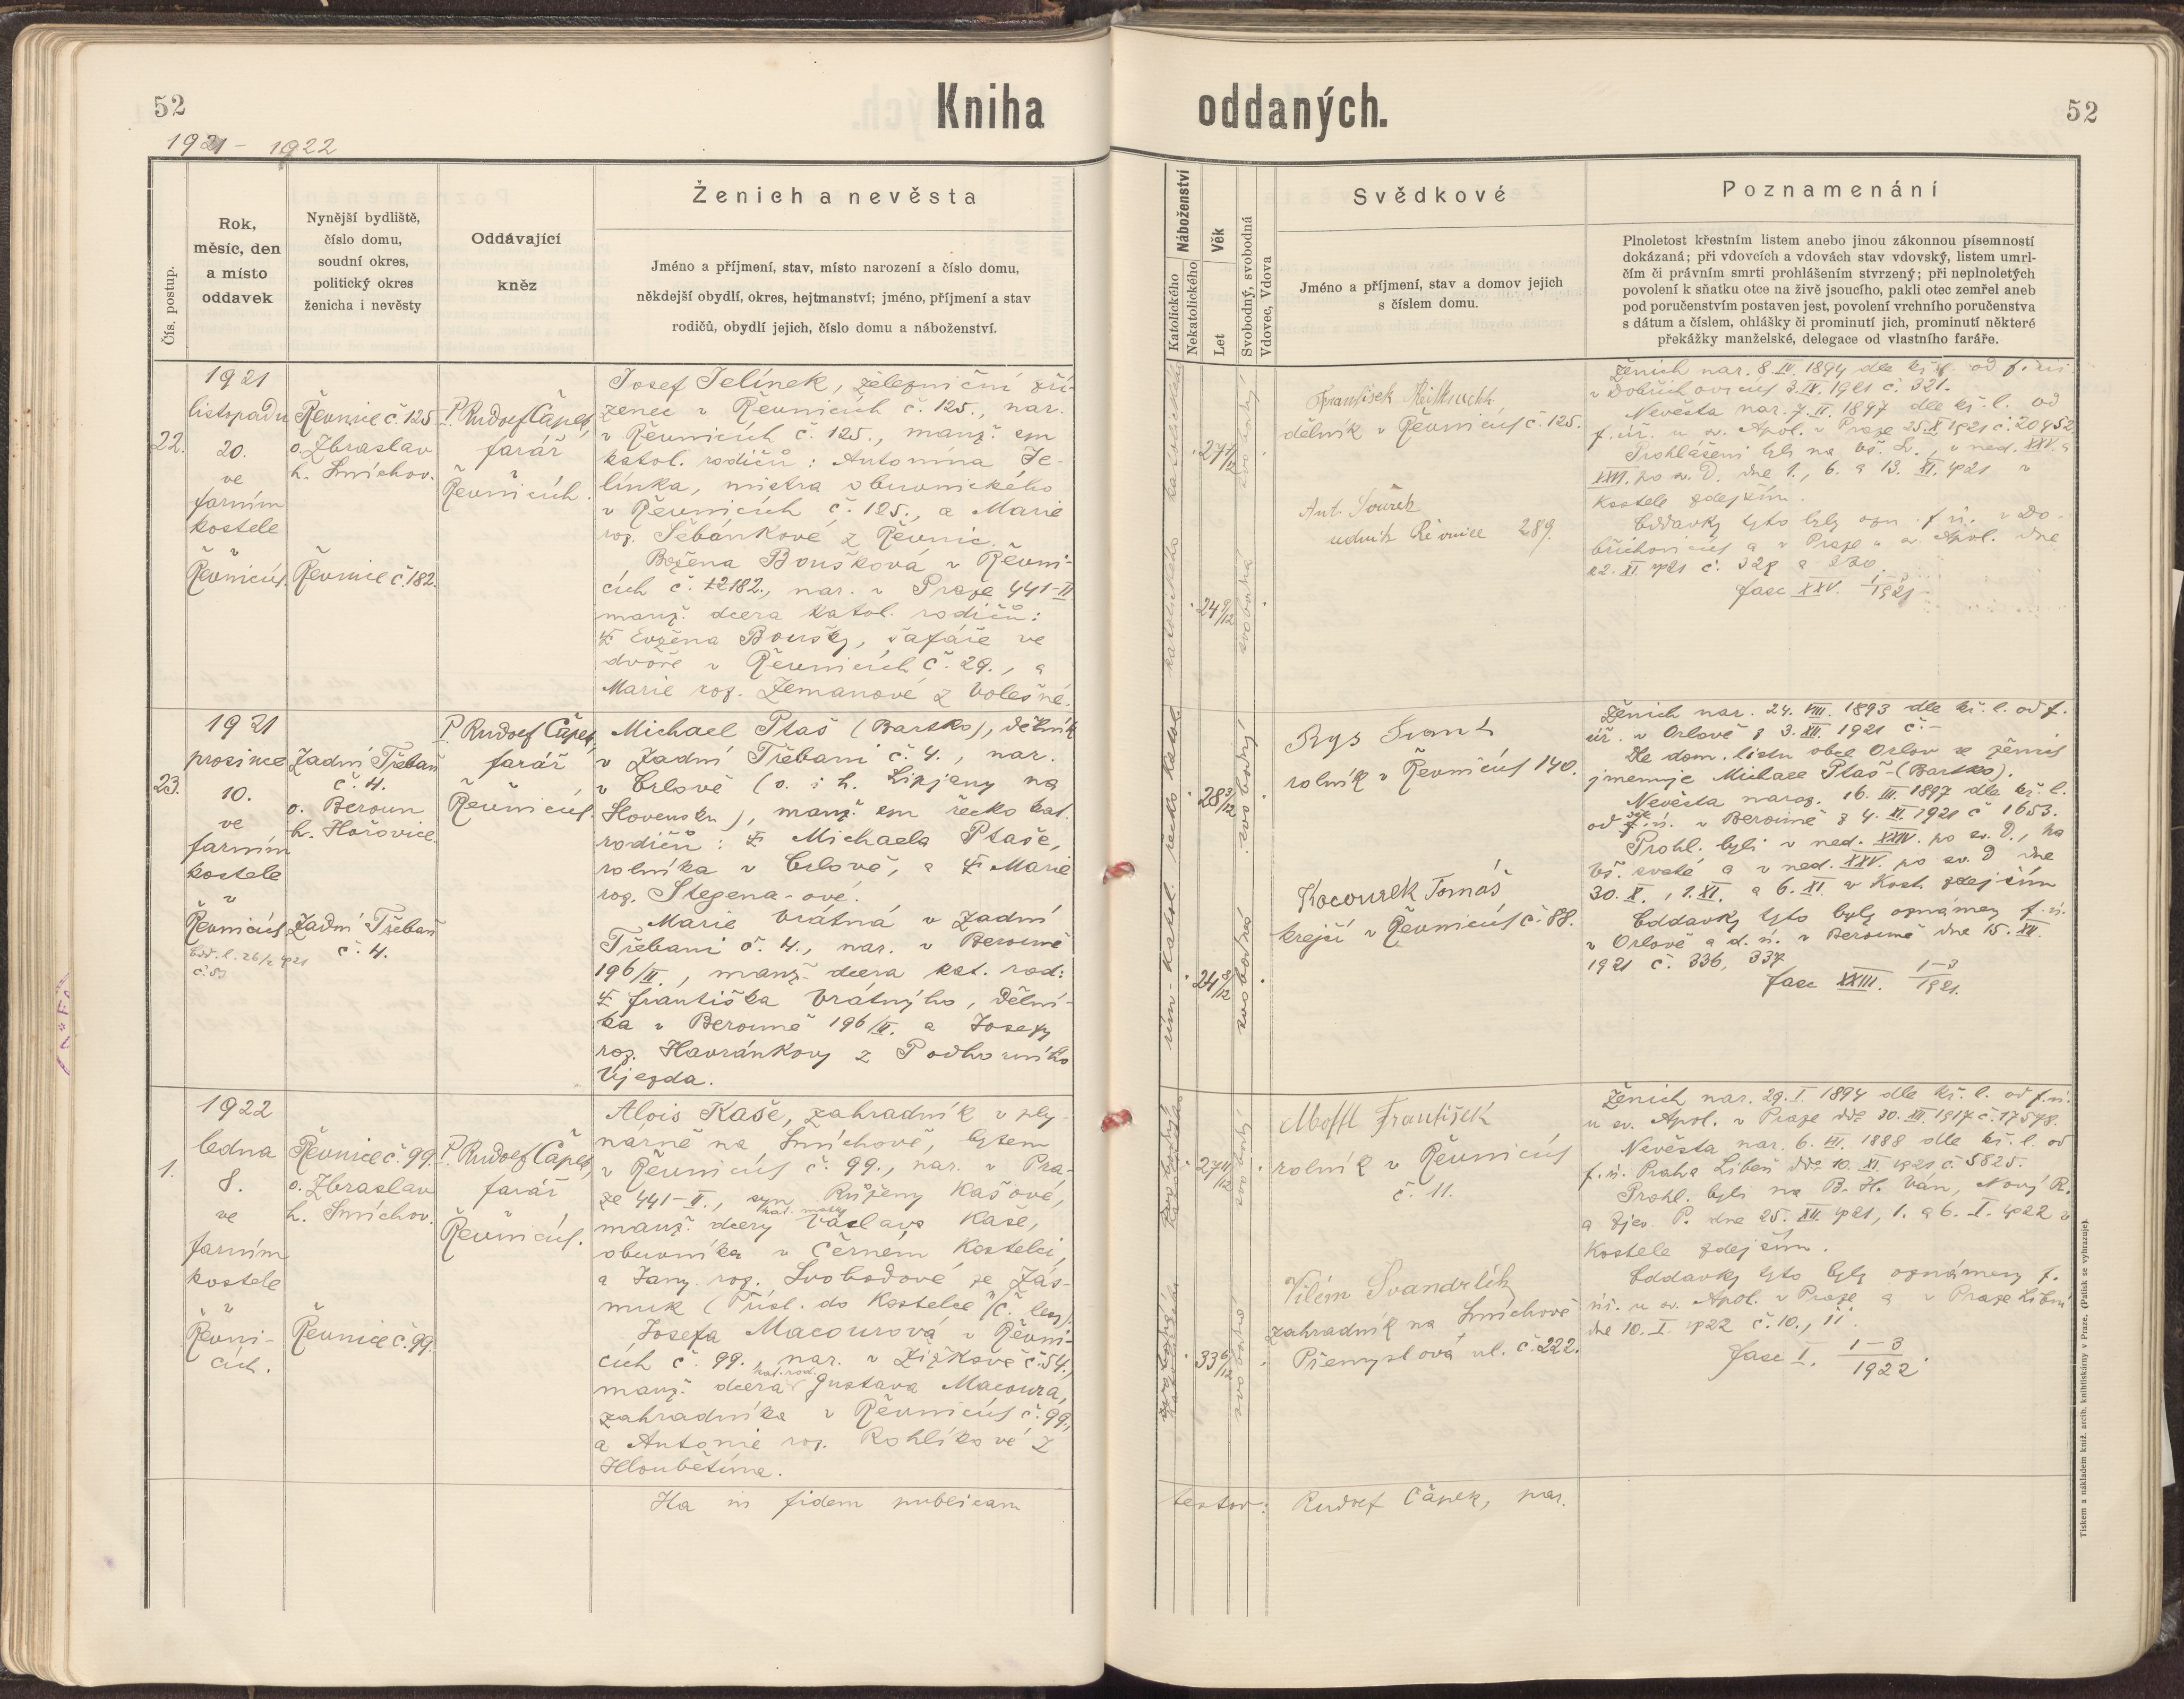 52
Kniha
oddaných.
52
1921 - 1922
Čís. postup.
Rok,
měsíc, den
a místo
oddavek
Nynější bydliště,
číslo domu,
soudní okres,
politický okres
ženicha i nevěsty
Oddávající
kněz
Ženich a nevěsta
Jméno a příjmení, stav, místo narození a číslo domu,
někdejší obydlí, okres, hejtmanství; jméno, příjmení a stav
rodičů, obydlí jejich, číslo domu a náboženství.
Náboženství
Katolického
Nekatolického
Věk
Let
Svobodný, svobodná
Vdovec, Vdova
Svědkové
Jméno a příjmení, stav a domov jejich
s číslem domu.
Poznamenání
Plnoletost křestním listem anebo jinou zákonnou písemností
dokázaná; při vdovcích a vdovách stav vdovský, listem umrl-
čím či právním smrti prohlášením stvrzený; při neplnoletých
povolení k sňatku otce na živě jsoucího, pakli otec zemřel aneb
pod poručenstvím postaven jest, povolení vrchního poručenstva
s dátum a číslem, ohlášky či prominutí jich, prominutí některé
překážky manželské, delegace od vlastního faráře.
22.
1921
listopadu
20.
ve
farním
kostele
v
Řevnicích.
Řevnice č. 125
o. Zbraslav
h. Smíchov.
Řevnice č. 182.
P. Rudolf Čapek,
farář
v
Řevnicích.
Josef Jelínek, železniční zří-
zenec v Řevnicích č. 125., nar.
v Řevnicích č. 125., manž. syn
katol. rodičů: Antonína Je-
línka, mistra obuvnického
v Řevnicích č. 125., a Marie
roz. Šebánkové z Řevnic.
Božena Boušková v Řevni-
cích č. 182., nar. v Praze 441-II
manž. dcera katol. rodičů:
Evžena Boušky, šafáře ve
dvoře v Řevnicích č. 29., a
Marie roz. Zemanové z Volešné.
katolického
katolického
27
24 9/12
svobodný
svobodná
František
dělník v Řevnicích č. 125.
Ant. Souček
Řevnice 289.
Ženich nar. 8. IV. 1894 dle kř. l. od f. úř.
v Dobřichovicích 3. IV. 1921 č. 321.
Nevěsta nar. 7. II. 1897 dle kř. l. od
f. úř. u sv. Apol. v Praze 25. X. 1921 č. 20452
Prohlášeni byli na Vš. Sv., v ned. XXV. a
XXVI. po sv. D. dne 1., 6. a 13. XI. 1921 v
kostele zdejším.
Oddavky tyto byly ozn. f. ú. v Do-
břichovicích a v Praze u sv. Apol. dne
22. XI. 1921 č. 329 a 330.
fasc XXV. 1/1921
23.
1921
prosince
10.
ve
farním
kostele
v
Řevnicích
Zadní Třebaň
č. 4.
o. Beroun
h. Hořovice.
Zadní Třebaň
č. 4.
P. Rudolf Čapek,
farář
v
Řevnicích.
Michael Ptaš (Bartko), dělník
v Zadní Třebani č. 4., nar.
v Orlově (o. i h. Lipjany na
Slovensku), manž. syn řecko kat.
rodičů: Michaela Ptaše,
rolníka v Orlově, a Marie
roz. Stegena-ové.
Marie Vrátná v Zadní
Třebani č. 4., nar. v Berouně
196/II., manž. dcera kat. rod:
Františka Vrátného, dělní-
ka v Berouně 196/II. a Josefy
roz. Havránkovy z Podhorního
Újezda.
řím-katol. řecko katol.
28 3/12
24 8/12
svobodný
svobodná
Rys Frant.
rolník v Řevnicích 140.
Kocourek Tomáš
krejčí v Řevnicích č. 88.
Ženich nar. 24. VIII. 1893 dle kř. l. od f.
úř. v Orlově z 3. XII. 1921 č. -
Dle dom. listu obce Orlov se ženich
jmenuje Michael Ptaš-(Bartko).
Nevěsta naroz. 16. III. 1897 dle kř. l.
od f. ú. v Berouně z 4. XI. 1921 č 1653.
Prohl. byli v ned. XXIV. po sv. D., na
Vš. svaté a v ned. XXV. po sv. D dne
30. X., 1. XI. a 6. XI. v kost. zdejším
Oddavky tyto byly oznámeny f. ú.
v Orlově a d. ú. v Berouně dne 15. XII.
1921 č. 336, 337
fasc XXIII. 1-3/1921.
1.
1922
ledna
8.
ve
farním
kostele
v
Řevni-
cích.
Řevnice č. 99.
o. Zbraslav
h. Smíchov.
Řevnice č. 99.
P. Rudolf Čapek,
farář
v
Řevnicích.
Alois Kaše, zahradník v ply-
nárně na Smíchově, bytem
v Řevnicích č. 99., nar. v Pra-
ze 441-II., syn Růženy Kašové,
kat. matky
manž. dcery Václava Kaše,
obuvníka v Černém Kostelci,
a Jany roz. Svobodové ze Zás-
muk (Přísl. do Kostelce n/Č. lesy)
Josefa Macourová v Řevni-
cích č. 99., nar. v Žižkově č. 54,
kat. rod.
manž. dcera Gustava Macoura,
zahradníka v Řevnicích č. 99.,
a Antonie roz. Rohlíkové z
Hloubětína.
27 11/12
33 6/12
svobodný
svobodná
Mottl František
rolník v Řevnicích
č. 11.
Vilém Švandrlík
zahradník na Smíchově
Přemyslova ul. č. 222.
Ženich nar. 29. I. 1894 dle kř. l. od f. ú.
u sv. Apol. v Praze dto 30. XII. 1917 č. 17578.
Nevěsta nar. 6. III. 1888 dle kř. l. od
f. ú. Praha Libeň dto 10. XI. 1921 č. 5825.
Prohl. byli na B. H. Ván, Nový R.
a Zjev. P. dne 25. XII. 1921, 1. a 6. I. 1922 v
kostele zdejším.
Oddavky tyto byly oznámeny f.
úř. u sv. Apol. v Praze a v Praze Libni
dne 10. I. 1922 č. 10., 11.
fasc I. 1-3/1922.
Ita in fidem publicam
testor: Rudolf Čapek, par.
Tiskem a nákladem kníž. arcib. knihtiskárny v Praze. (Patisk se vyhrazuje).